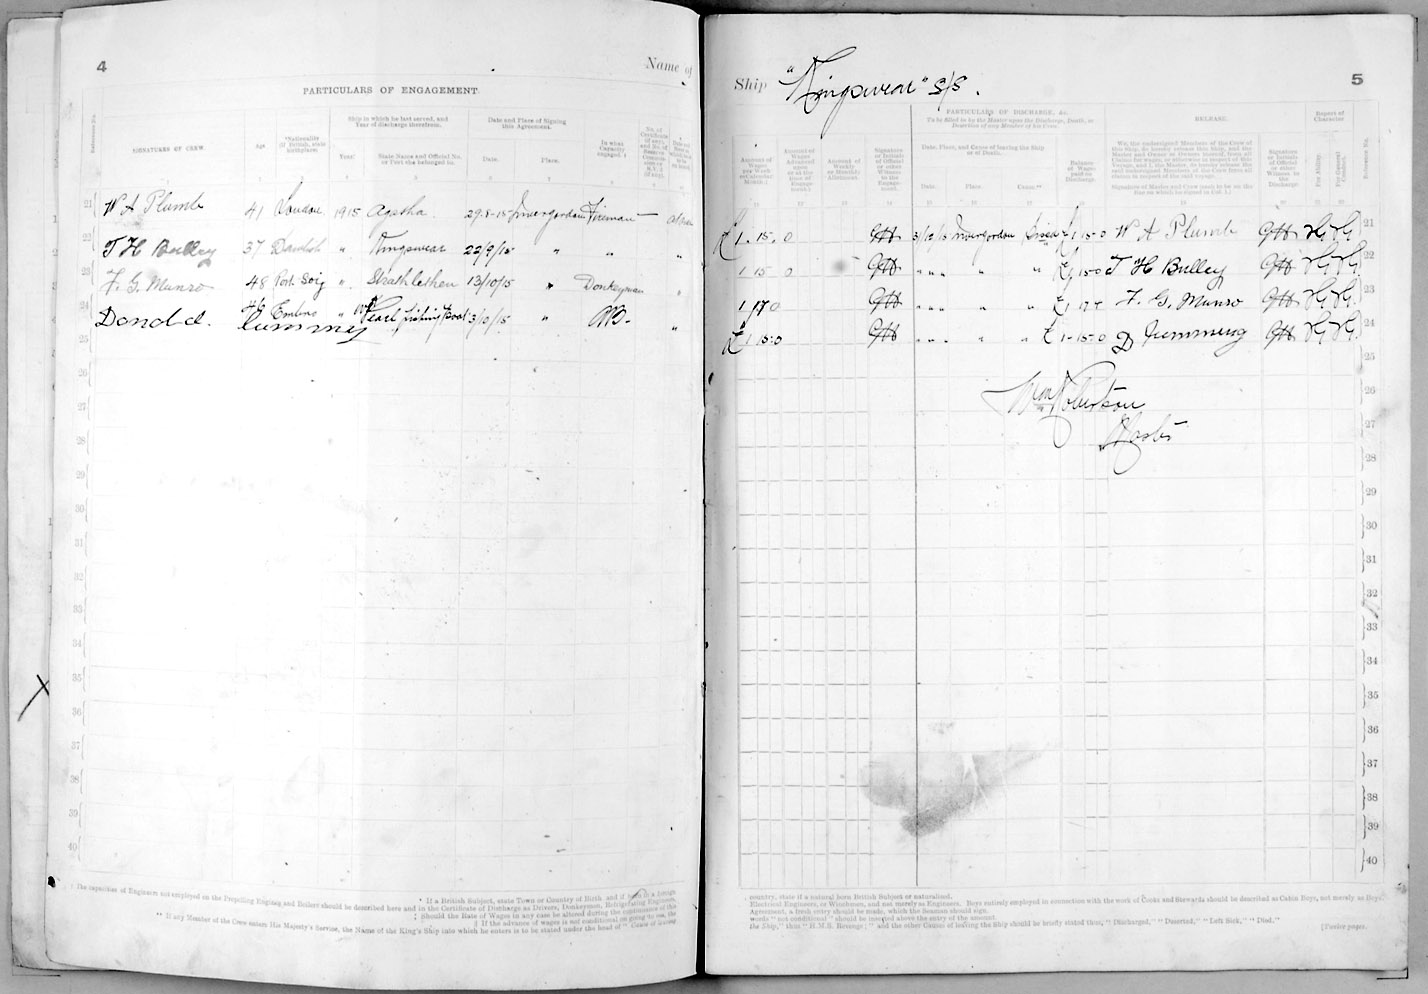 4
Name of
PARTICULARS OF ENGAGEMENT.
Reference No.
SIGNATURES OF CREW.
Age
*Nationality (if British, state birthplace).
Ship in which he last served, and Year of discharge therefrom.
Year.
State Name and Official No. or Port she belonged to.
Date and Place of Signing this Agreement.
Date.
Place.
In what Capacity engaged.
21 W A Plumb 41 London 1915 Agatha 29.8.15 Invergordon Fireman
22 T H Bulley 37 Dawlish " Kingswear 22/9/15 " " "
23 F. G. Munro 48 " Strathlethen 13/10/15 " Donkeyman "
24 Donald Cummings Embo " Pearl fishing Boat 3/10/15 " AB. "
25
26
27
28
29
30
31
32
33
34
35
36
37
38
39
40
† The capacities of Engineers not employed on the Propelling Engines and Boilers should be described here and in the Certificate of Discharge as Drivers, Donkeymen, Refrigerating Engineers,
* If a British Subject, state Town or Country of Birth and if born in a foreign
‡ Should the Rate of Wages in any case be altered during the continuance of the
§ If the advance of wages is not conditional on going to sea, the
** If any Member of the Crew enters His Majesty's Service, the Name of the King's Ship into which he enters is to be stated under the head of "Cause of
Ship "Kingswear" S/S.
5
PARTICULARS OF DISCHARGE, &c.
To be filled in by the Master upon the Discharge, Death, or Desertion of any Member of his Crew.
RELEASE.
Report of Character
Amount of Wages per Week or Calendar Month.
Amount of Wages Advanced upon or at the time of Engagement.
Amount of Weekly or Monthly Allotment.
Signature or Initials of Official or other Witness to the Engagement.
Date, Place, and Cause of leaving the Ship or of Death.
Date.
Place.
Cause.**
Balance of Wages paid on Discharge.
We, the undersigned Members of the Crew of this Ship, do hereby release this Ship, and the Master and Owner or Owners thereof, from all Claims for wages or otherwise in respect of this Voyage, and I, the Master, do hereby release the said undersigned Members of the Crew from all claims in respect of the said voyage.
Signature of Master and Crew (each to be on the line on which he signed in Col. 1.)
Signature or Initials of Official or other Witness to the Discharge
For Ability.
For General Conduct.
Reference No.
£1.15.0 3/10/15 Invergordon £1 15 0 W A Plumb 21
1 15 0 " " " " " £1 15 0 T H Bulley 22
1 17 0 " " " " " £1 17 F. G. Munro 23
£1 15.0 " " " " " £1-15-0 D Cummings 24
Wm Robertson
Master
25
26
27
28
29
30
31
32
33
34
35
36
37
38
39
40
country, state if a natural born British Subject or naturalised.
Electrical Engineers, or Winchmen, and not merely as Engineers. Boys entirely employed in connection with the work of Cooks and Stewards should be described as Cabin Boys, not merely as Boys.
Agreement, a fresh entry should be made, which the Seaman should sign.
words "not conditional" should be inserted above the entry of the amount.
the Ship," thus "H.M.S. Revenge;" and the other Causes of leaving the Ship should be briefly stated thus, "Discharged," "Deserted," "Left Sick," "Died."
[Twelve pages.